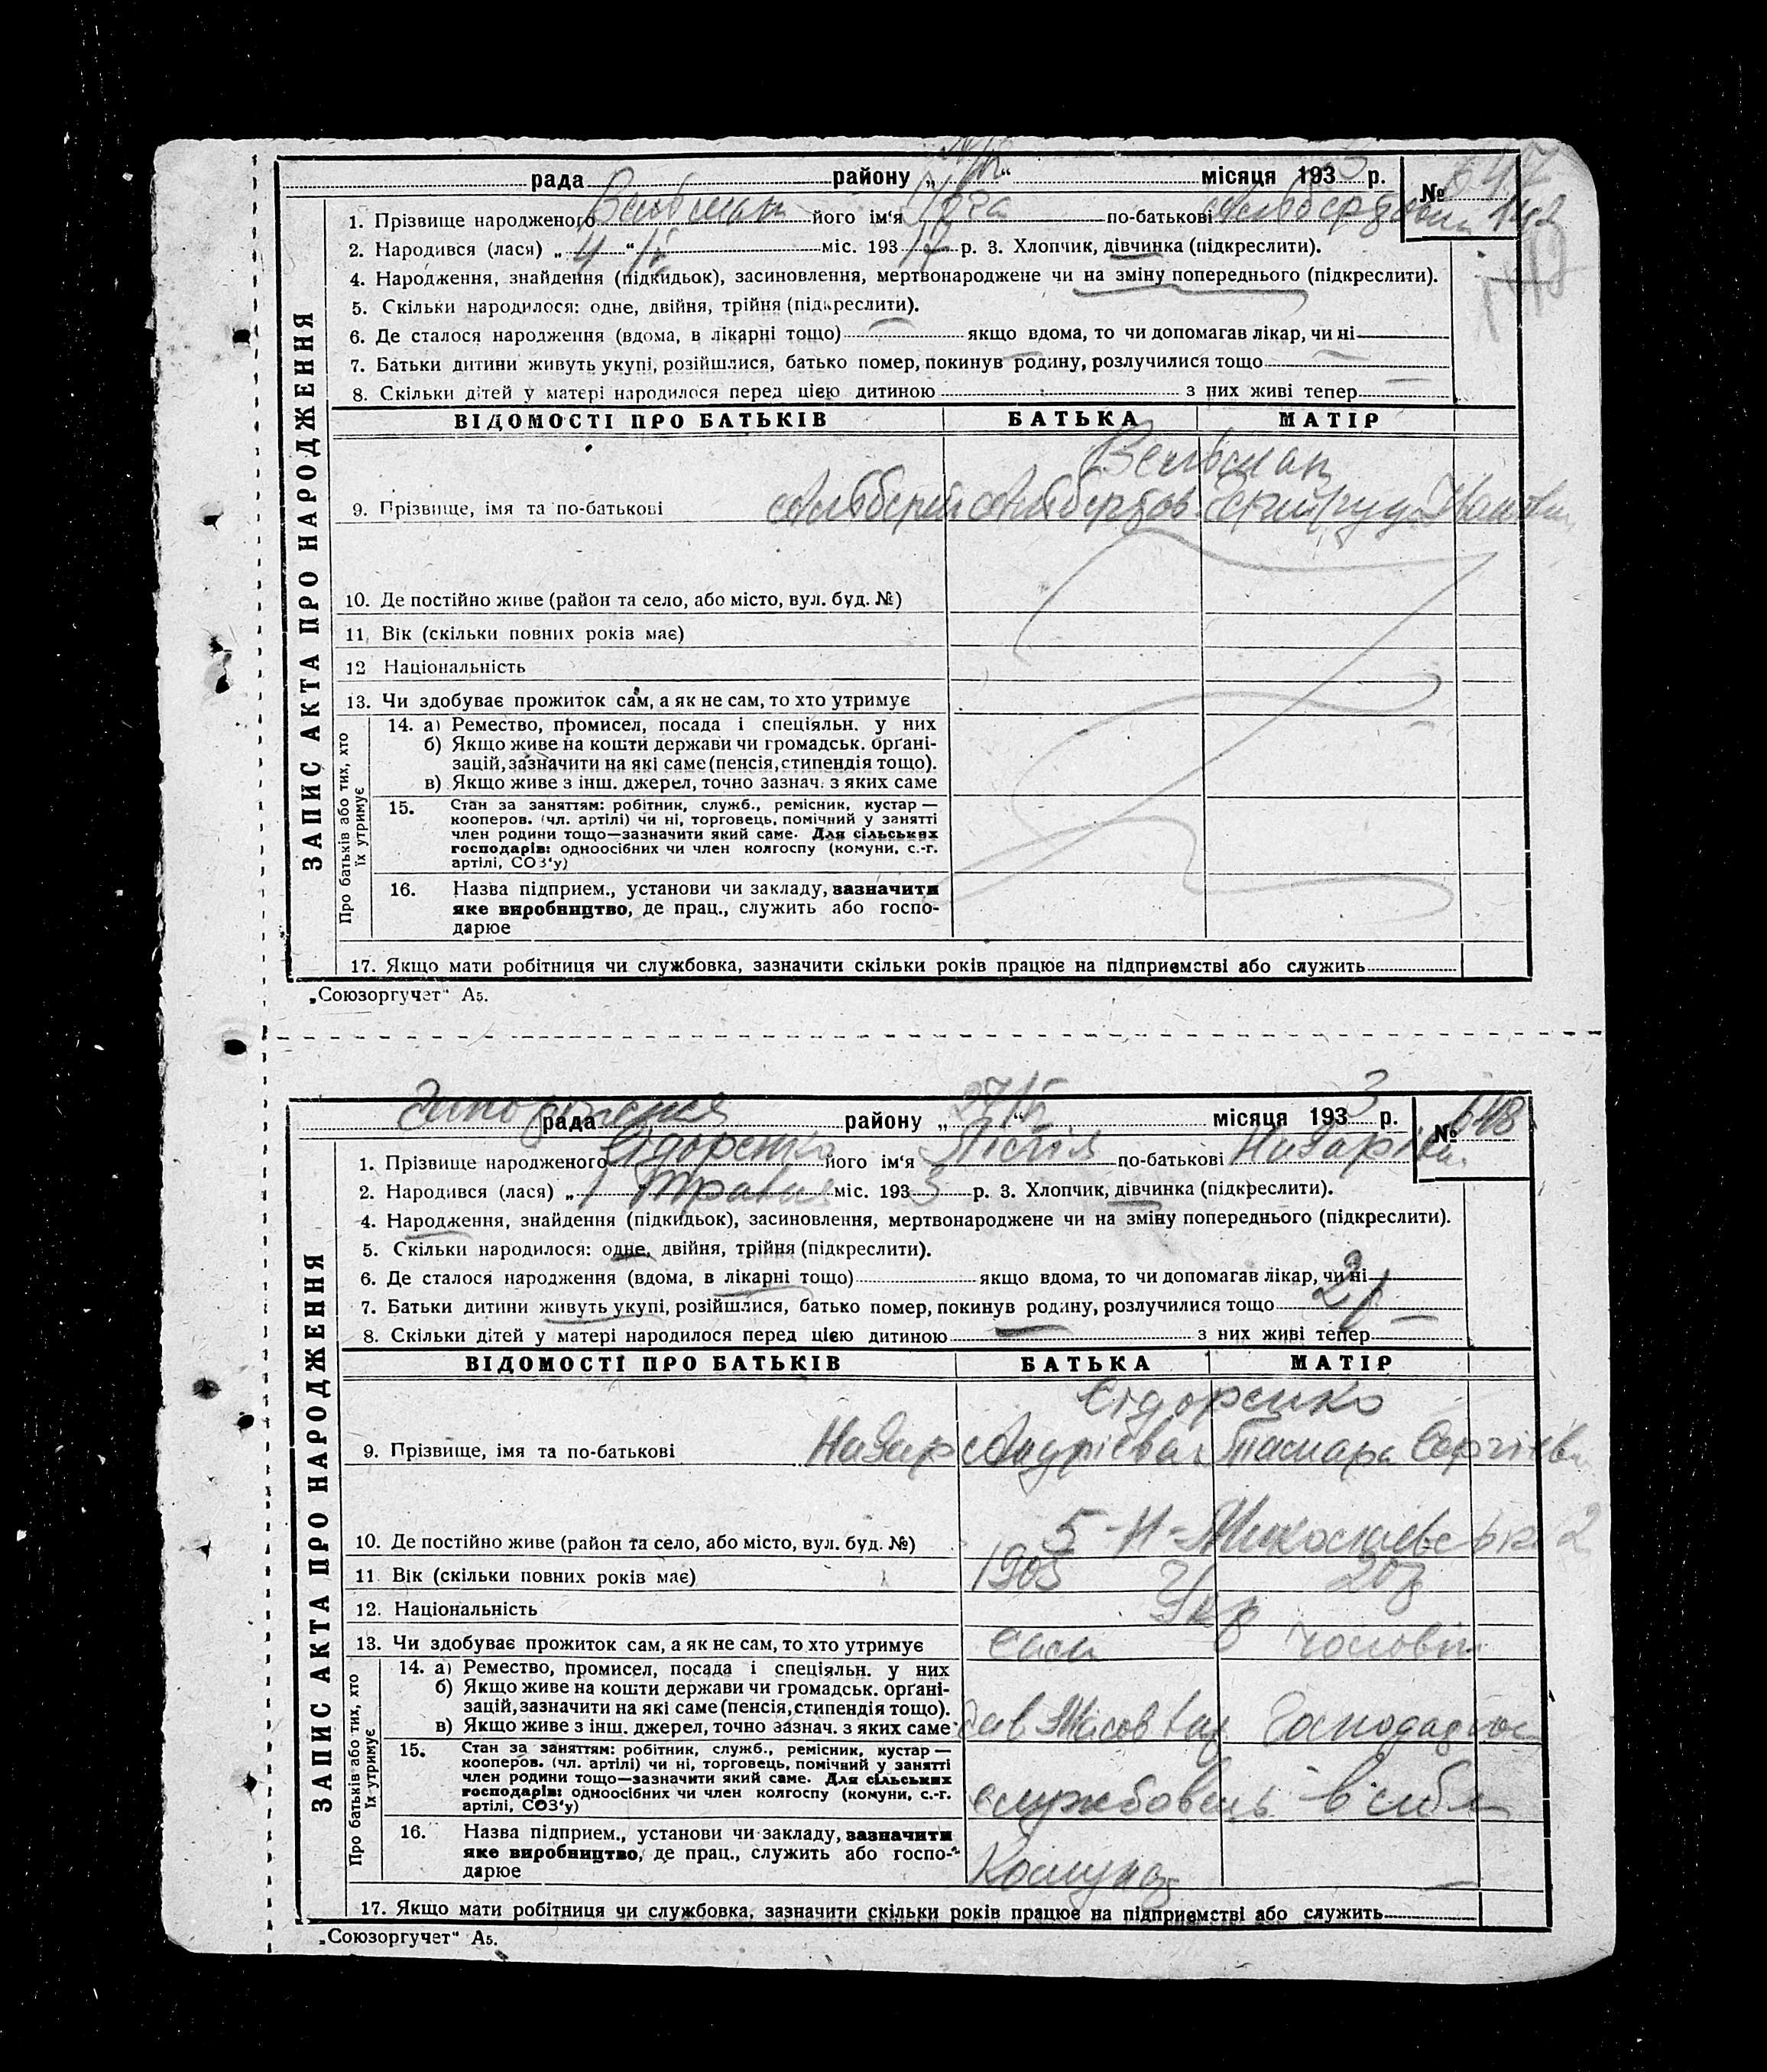 рада району „ “ місяця 193 3 р. № 647
1. Прізвище народженого Вельман його ім‘я по-батькові Альбертовна 142
2. Народився (лася) „ 4 “ міс. 193 р. 3. Хлопчик, дівчинка (підкреслити).
4. Народження, знайдення (підкидьок), засиновлення, мертвонароджене чи на зміну попереднього (підкреслити).
5. Скільки народилося: одне, двійня, трійня (підкреслити).
6. Де сталося народження (вдома, в лікарні тощо) якщо вдома, то чи допомагав лікар, чи ні
7. Батьки дитини живуть укупі, розійшлися, батько помер, покинув родину, розлучилися тощо
8. Скільки дітей у матері народилося перед цією дитиною з них живі тепер
ЗАПИС АКТА ПРО НАРОДЖЕННЯ
ВІДОМОСТІ ПРО БАТЬКІВ БАТЬКА МАТІР
Вельман
9. Прізвище, імя та по-батькові Альберт Альбертов.
10. Де постійно живе (район та село, або місто, вул. буд. №)
11. Вік (скільки повних років має)
12 Національність
13. Чи здобуває прожиток сам, а як не сам, то хто утримує
Про батьків або тих, хто їх утримує
14. а) Ремество, промисел, посада і спеціяльн. у них
б) Якщо живе на кошти держави чи громадськ. орґані-
зацій, зазначити на які саме (пенсія, стипендія тощо).
в) Якщо живе з інш. джерел, точно зазнач. з яких саме
15. Стан за заняттям: робітник, служб., ремісник, кустар —
кооперов. (чл. артілі) чи ні, торговець, помічний у занятті
член родини тощо—зазначити який саме. Для сільських
господарів: одноосібних чи член колгоспу (комуни, с.-г.
артілі, СОЗ‘у)
16. Назва підприєм., установи чи закладу, зазначити
яке виробництво, де прац., служить або госпо-
дарює
17. Якщо мати робітниця чи службовка, зазначити скільки років працює на підприємстві або служить
„Союзоргучет“ А5.
рада району „ 27/ “ місяця 193 3 р. № 648
1. Прізвище народженого Сідоренко його ім‘я Лілія по-батькові Назарівна
2. Народився (лася) „ 1 “ травня міс. 193 3 р. 3. Хлопчик, дівчинка (підкреслити).
4. Народження, знайдення (підкидьок), засиновлення, мертвонароджене чи на зміну попереднього (підкреслити).
5. Скільки народилося: одне, двійня, трійня (підкреслити).
6. Де сталося народження (вдома, в лікарні тощо) якщо вдома, то чи допомагав лікар, чи ні
7. Батьки дитини живуть укупі, розійшлися, батько помер, покинув родину, розлучилися тощо
8. Скільки дітей у матері народилося перед цією дитиною — з них живі тепер —
ЗАПИС АКТА ПРО НАРОДЖЕННЯ
ВІДОМОСТІ ПРО БАТЬКІВ БАТЬКА МАТІР
Сідоренко
9. Прізвище, імя та по-батькові Назар Андрієвич Тамара Сергієвн
10. Де постійно живе (район та село, або місто, вул. буд. №) 5-Н-Миколаевська 2
11 Вік (скільки повних років має) 1905
12. Національність Укр
13. Чи здобуває прожиток сам, а як не сам, то хто утримує сам чоловік
Про батьків або тих, хто їх утримує
14. а) Ремество, промисел, посада і спеціяльн. у них
б) Якщо живе на кошти держави чи громадськ. орґані-
зацій, зазначити на які саме (пенсія, стипендія тощо).
в) Якщо живе з інш. джерел, точно зазнач. з яких саме
15. Стан за заняттям: робітник, служб., ремісник, кустар —
кооперов. (чл. артілі) чи ні, торговець, помічний у занятті
член родини тощо—зазначити який саме. Для сільських
господарів: одноосібних чи член колгоспу (комуни, с.-г.
артілі, СОЗ‘у) службовець
16. Назва підприєм., установи чи закладу, зазначити
яке виробництво, де прац., служить або госпо-
дарює
17. Якщо мати робітниця чи службовка, зазначити скільки років працює на підприємстві або служить
„Союзоргучет“ А5.